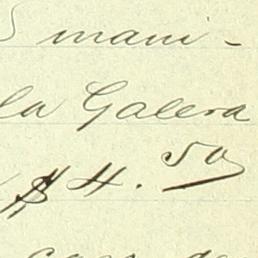 mani-
la Galera
$ 4.50